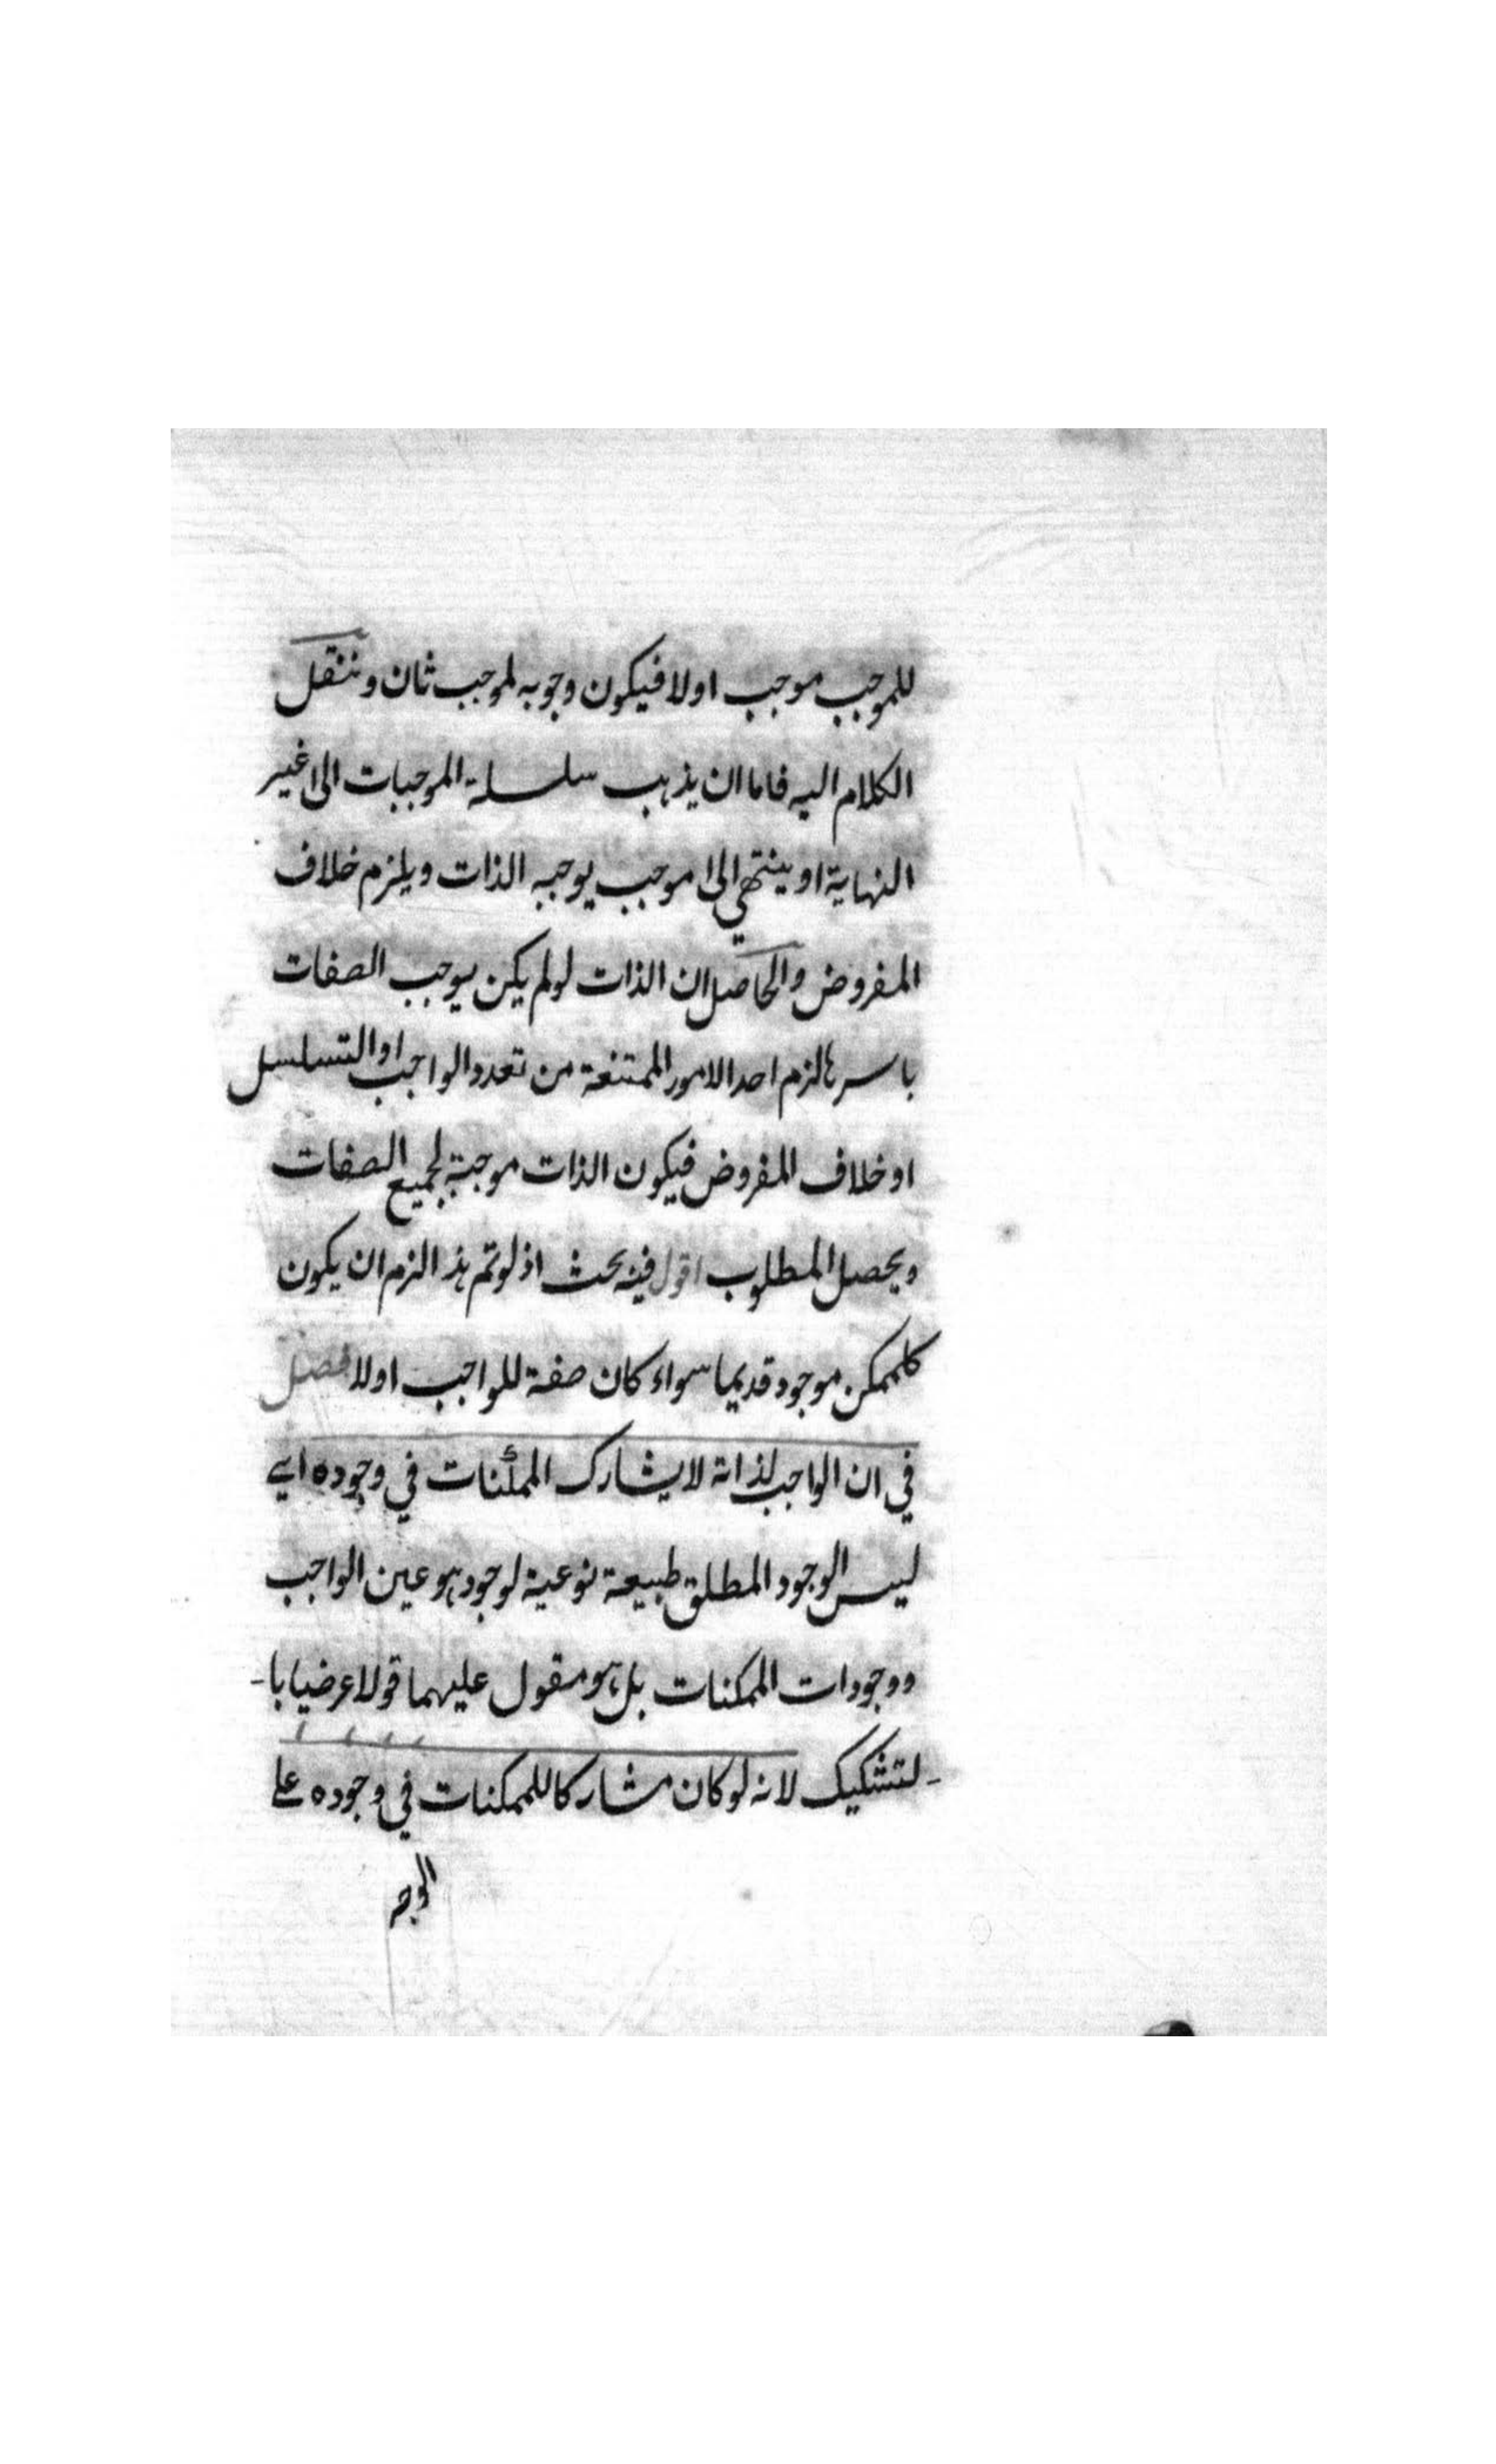 للموجب موجب اولا فيكون وجوبه لموجب ثان وننقل
الكلام اليه فاما ان يذهب سلسلة الموجبات الى غير
النهاية او ينتهي الى موجب يوجبه الذات ويلزم خلاف
المفروض والحاصل ان الذات لو لم يكن يوجب الصفات
باسرها لزم احد الامور الممتنعة من تعدد الواجب او التسلسل
او خلاف المفروض فيكون الذات موجبة لجميع الصفات
ويحصل المطلوب اقول فيه بحث اذ لو تم هذا لزم ان يكون
كل ممكن موجود قديما سواء كان صفة للواجب اولا فصل
في ان الواجب لذاته لا يشارك الممكنات في وجوده اي
ليس الوجود المطلق طبيعة نوعية لوجود هو عين الواجب
ووجودات الممكنات بل هو مقول عليهما قولا عرضيا با-
-لتشكيك لانه لو كان مشاركا للممكنات في وجوده على
الوجه